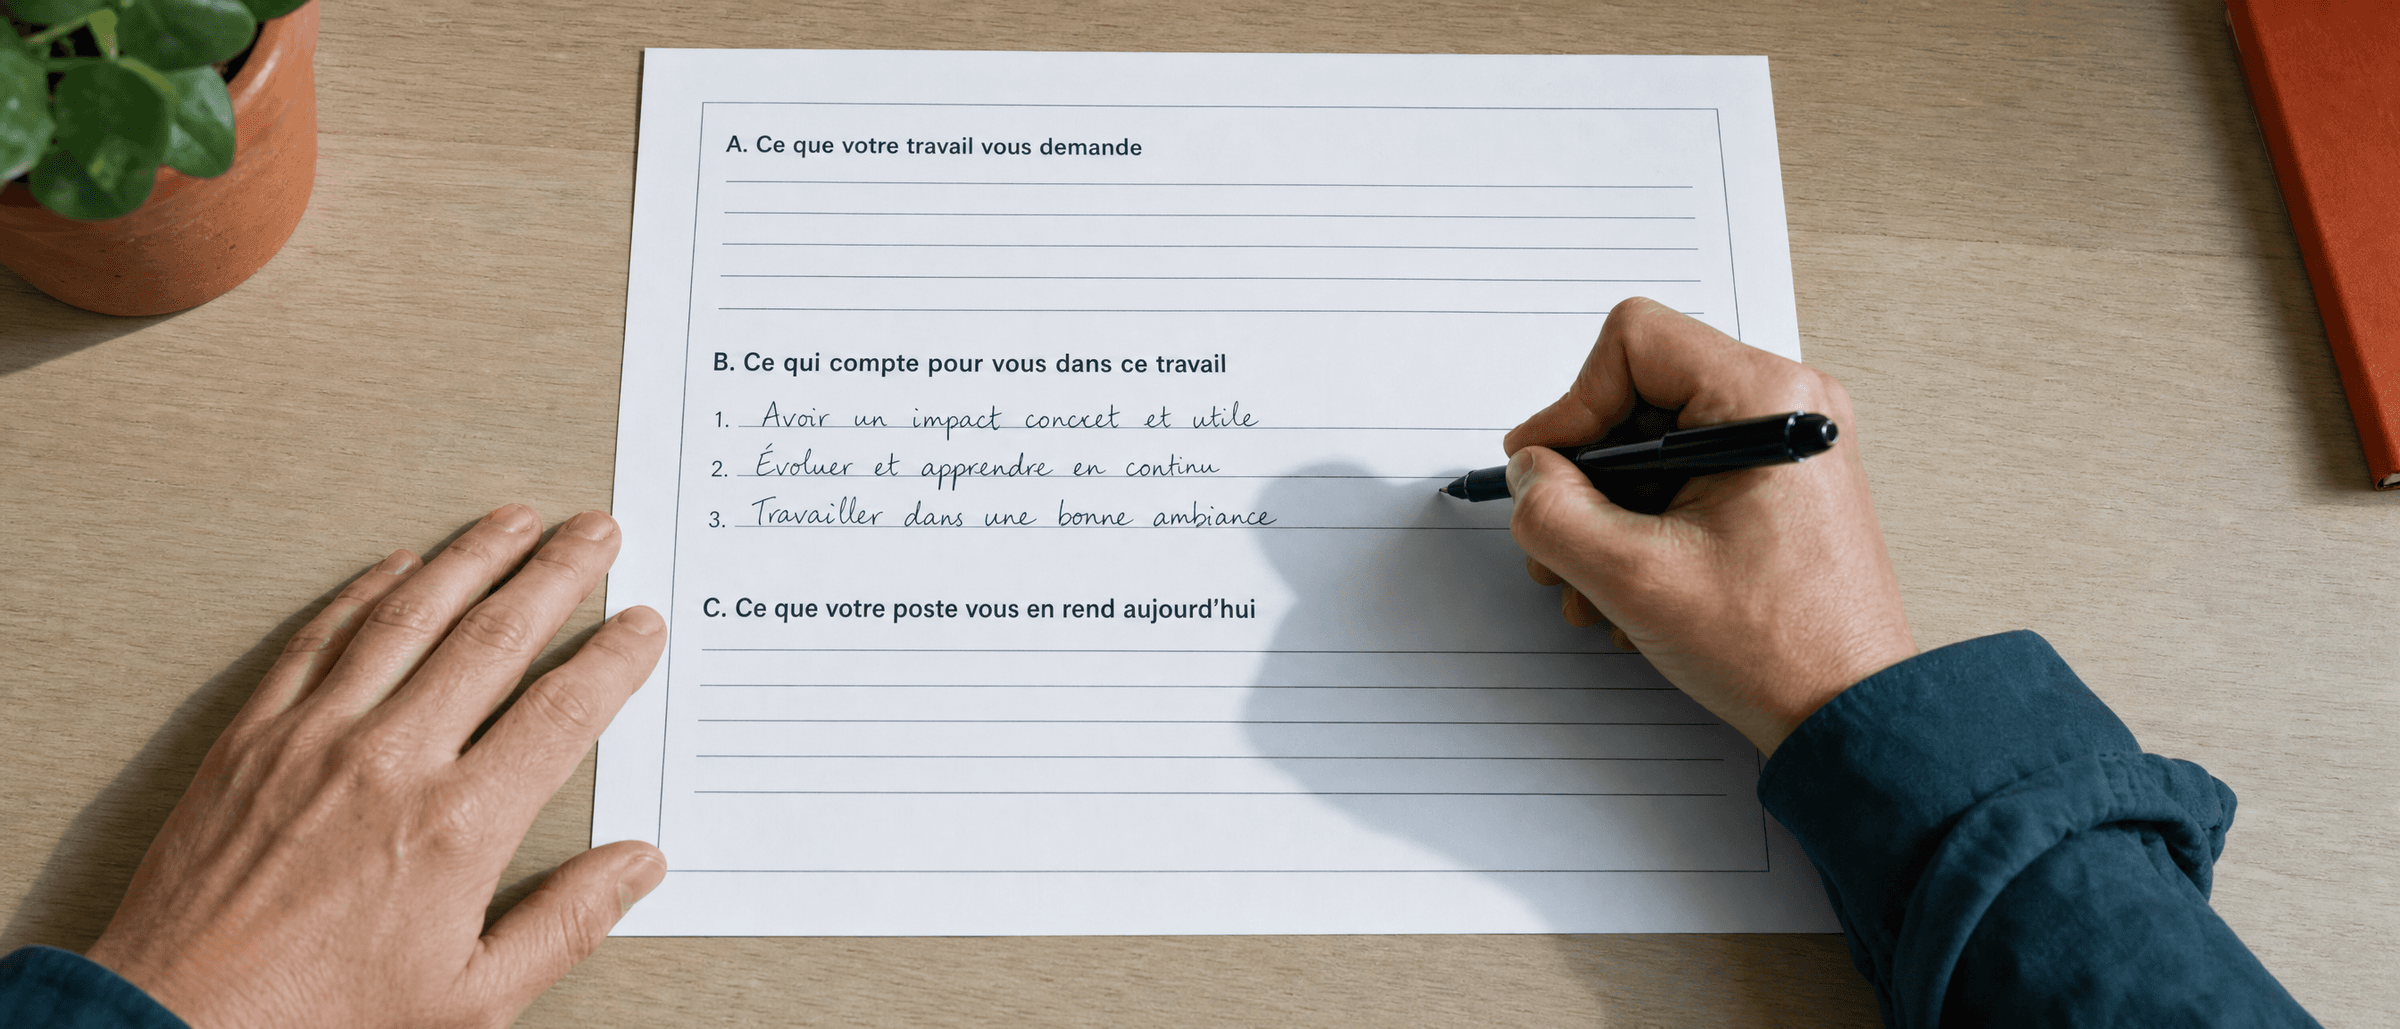 A. Ce que votre travail vous demande
B. Ce qui compte pour vous dans ce travail
1. Avoir un impact concret et utile
2. Évoluer et apprendre en continu
3. Travailler dans une bonne ambiance
C. Ce que votre poste vous en rend aujourd’hui